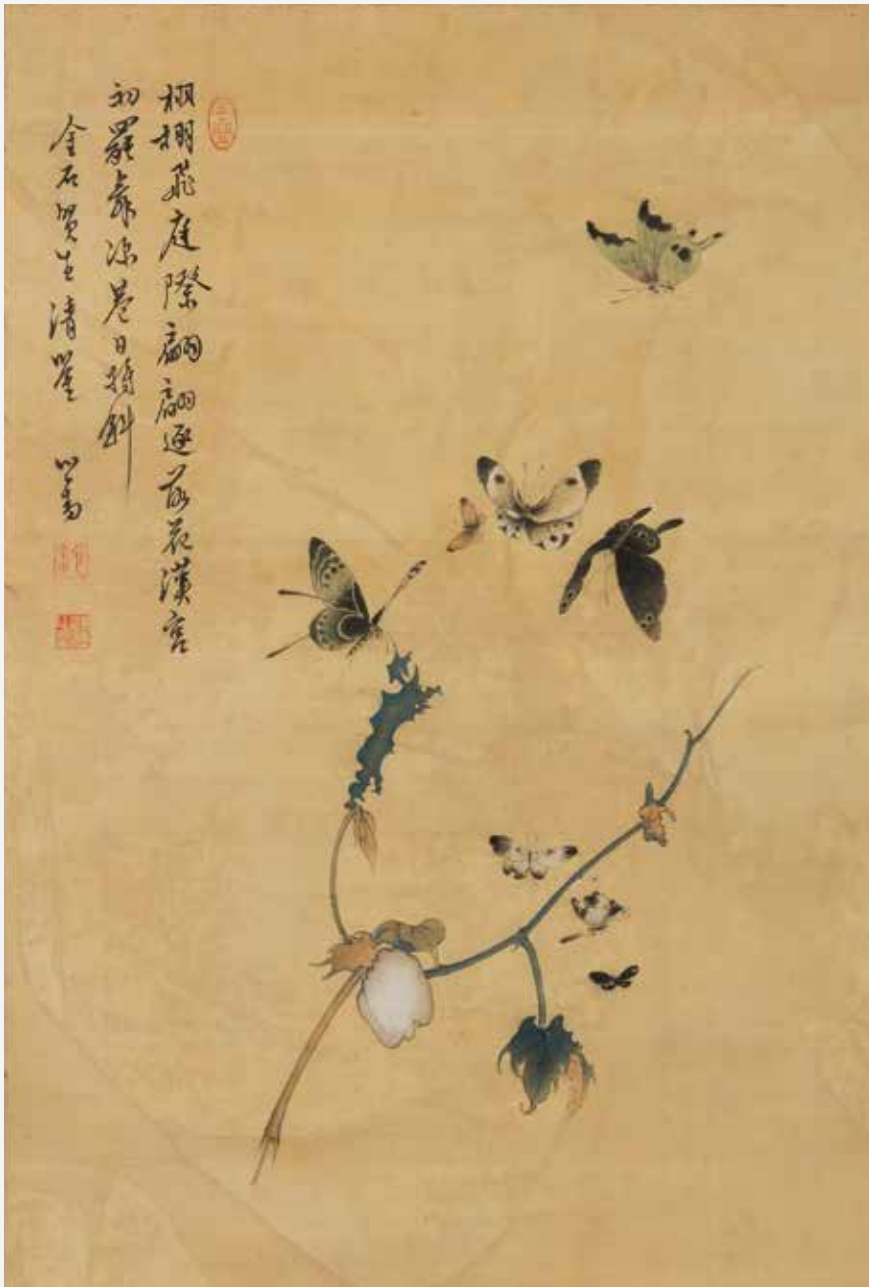 栩栩飛庭際翩翩逐落花漢宮
初罷舞深巷日將斜
金石賢生清鑒 心畬